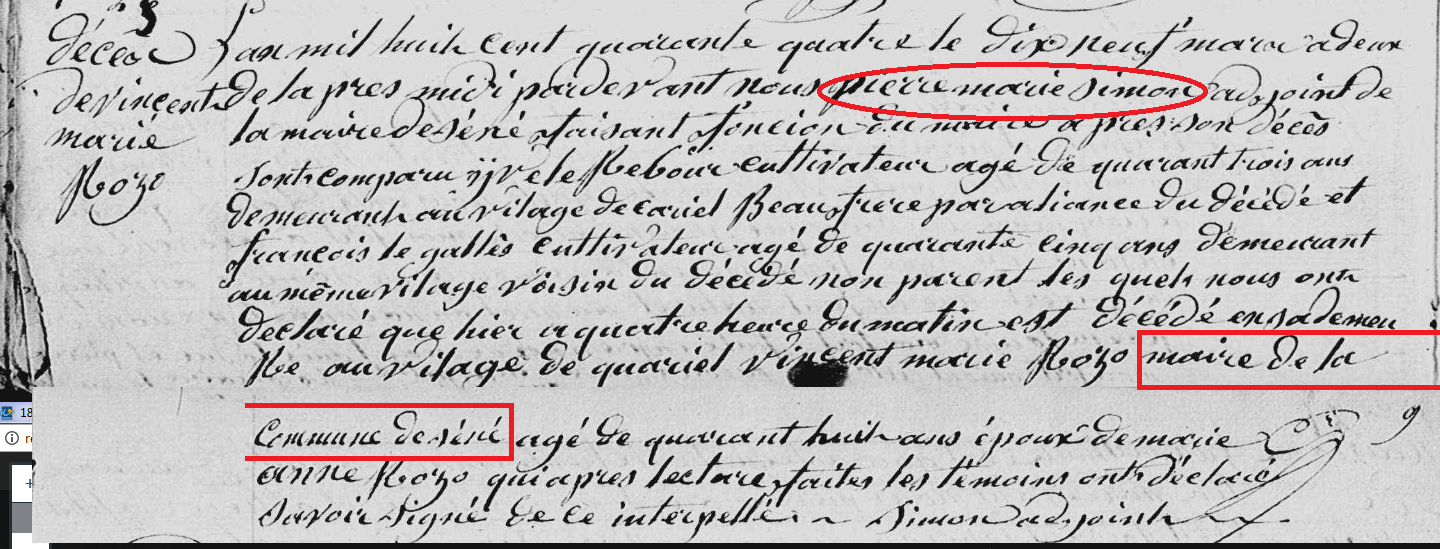 décès
de vincent
marie
Rozo
Lan mil huit cent quarante quatre le dix neuf mars a deux
de la pres midi pardevant nous pierre marie simon adjoint de
la maire de séné faisant foncion du maire a pres son décès
sont comparu yve le Rebour cultivateur agé de quarant trois ans
demeurant au vilage de cariel Beau frere par aliance du décédé et
francois le gallès cultivateur agé de quarante cinq ans demeurant
au même vilage voisin du décédé non parent les quels nous ont
declaré que hier a quatre heure du matin est décédé en sa demeu
Re au vilage de quariel vincent marie Rozo maire de la
Commune de séné agé de quarant huit ans époux de marie
anne Rozo qui apres lecture faites les témoins ont déclaré
savoir signé de ce interpellé. Simon adjoint
9
18